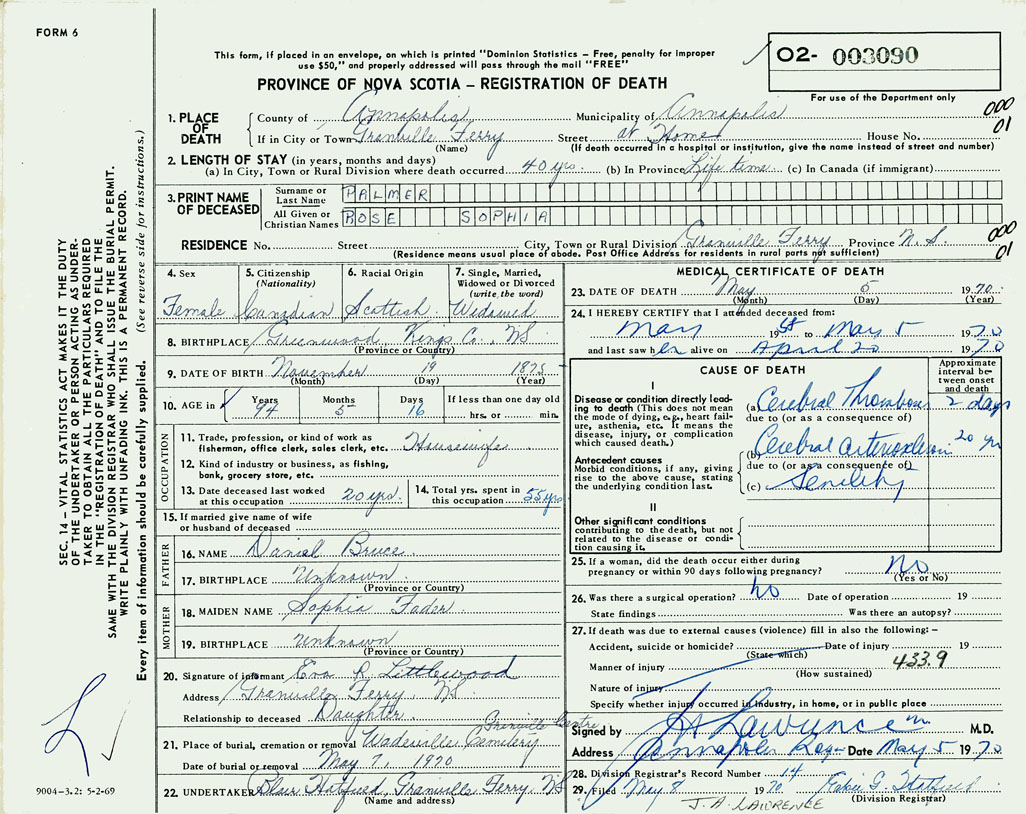 FORM 6
This form, if placed in an envelope, on which is printed "Dominion Statistics – Free, penalty for improper
use $50," and properly addressed will pass through the mail "FREE"
PROVINCE OF NOVA SCOTIA – REGISTRATION OF DEATH
02- 003090
For use of the Department only
000
01
1. PLACE OF DEATH
County of Annapolis, Municipality of Annapolis
If in City or Town Granville Ferry Street at Home House No.
(Name) (If death occurred in a hospital or institution, give the name instead of street and number)
2. LENGTH OF STAY (in years, months and days)
(a) In City, Town or Rural Division where death occurred 40 yrs. (b) In Province Life time (c) In Canada (if immigrant)
3. PRINT NAME OF DECEASED
Surname or Last Name PALMER
All Given or Christian Names ROSE SOPHIA
RESIDENCE No. Street City, Town or Rural Division Granville Ferry Province N.S.
(Residence means usual place of abode. Post Office Address for residents in rural parts not sufficient)
000
01
4. Sex Female
5. Citizenship (Nationality) Canadian
6. Racial Origin Scottish
7. Single, Married, Widowed or Divorced (write the word) Widowed
8. BIRTHPLACE Greenwood, Kings Co., NS
(Province or Country)
9. DATE OF BIRTH November 19 1875
(Month) (Day) (Year)
10. AGE in Years 94 Months 5 Days 16 If less than one day old hrs. or min.
OCCUPATION
11. Trade, profession, or kind of work as
fisherman, office clerk, sales clerk, etc. Housewife
12. Kind of industry or business, as fishing,
bank, grocery store, etc.
13. Date deceased last worked
at this occupation 20 yrs.
14. Total yrs. spent in
this occupation 55 yrs
15. If married give name of wife
or husband of deceased
FATHER
16. NAME Daniel Bruce
17. BIRTHPLACE Unknown
(Province or Country)
MOTHER
18. MAIDEN NAME Sophia Fader
19. BIRTHPLACE Unknown
(Province or Country)
20. Signature of informant Eva R Littlewood
Address Granville Ferry, NS
Relationship to deceased Daughter
Granville Centre
21. Place of burial, cremation or removal Wadeville Cemetery
Date of burial or removal May 7, 1970
22. UNDERTAKER Blair Hatfield, Granville Ferry, NS
(Name and address)
MEDICAL CERTIFICATE OF DEATH
23. DATE OF DEATH May 5 1970
(Month) (Day) (Year)
24. I HEREBY CERTIFY that I attended deceased from:
May 1st to May 5 1970
and last saw her alive on April 20 1970
CAUSE OF DEATH
Approximate interval between onset and death
I
Disease or condition directly leading to death (This does not
the mode of dying, e.g., heart failure, asthenia, etc. It means the
disease, injury, or complication
which caused death.)
(a) Cerebral Thrombosis 2 days
due to (or as a consequence of)
Antecedent causes
Morbid conditions, if any, giving
rise to the above cause, stating
the underlying condition last.
(b) Cerebral arteriosclerosis 20 yr
due to (or as a consequence of)
(c) Senility
II
Other significant conditions
contributing to the death, but not
related to the disease or condition causing it.
25. If a woman, did the death occur either during
pregnancy or within 90 days following pregnancy? No
(Yes or No)
26. Was there a surgical operation? no Date of operation 19
State findings Was there an autopsy?
27. If death was due to external causes (violence) fill in also the following: –
Accident, suicide or homicide? Date of injury 19
(State which)
433.9
Manner of injury
(How sustained)
Nature of injury
Specify whether injury occurred in industry, in home, or in public place
Signed by J A Lawrence M.D.
Address Annapolis Royal Date May 5 1970
28. Division Registrar's Record Number 14
29. Filed May 8 1970 G. Hatfield
(Division Registrar)
J. A. LAWRENCE
SEC. 14 – VITAL STATISTICS ACT MAKES IT THE DUTY
OF THE UNDERTAKER OR PERSON ACTING AS UNDER-
TAKER TO OBTAIN ALL THE PARTICULARS REQUIRED
IN THE "REGISTRATION OF DEATH" AND TO FILE THE
SAME WITH THE DIVISION REGISTRAR WHO SHALL ISSUE THE BURIAL PERMIT.
WRITE PLAINLY WITH UNFADING INK. THIS IS A PERMANENT RECORD.
Every item of information should be carefully supplied. (See reverse side for instructions.)
9004–3.2: 5-2-69